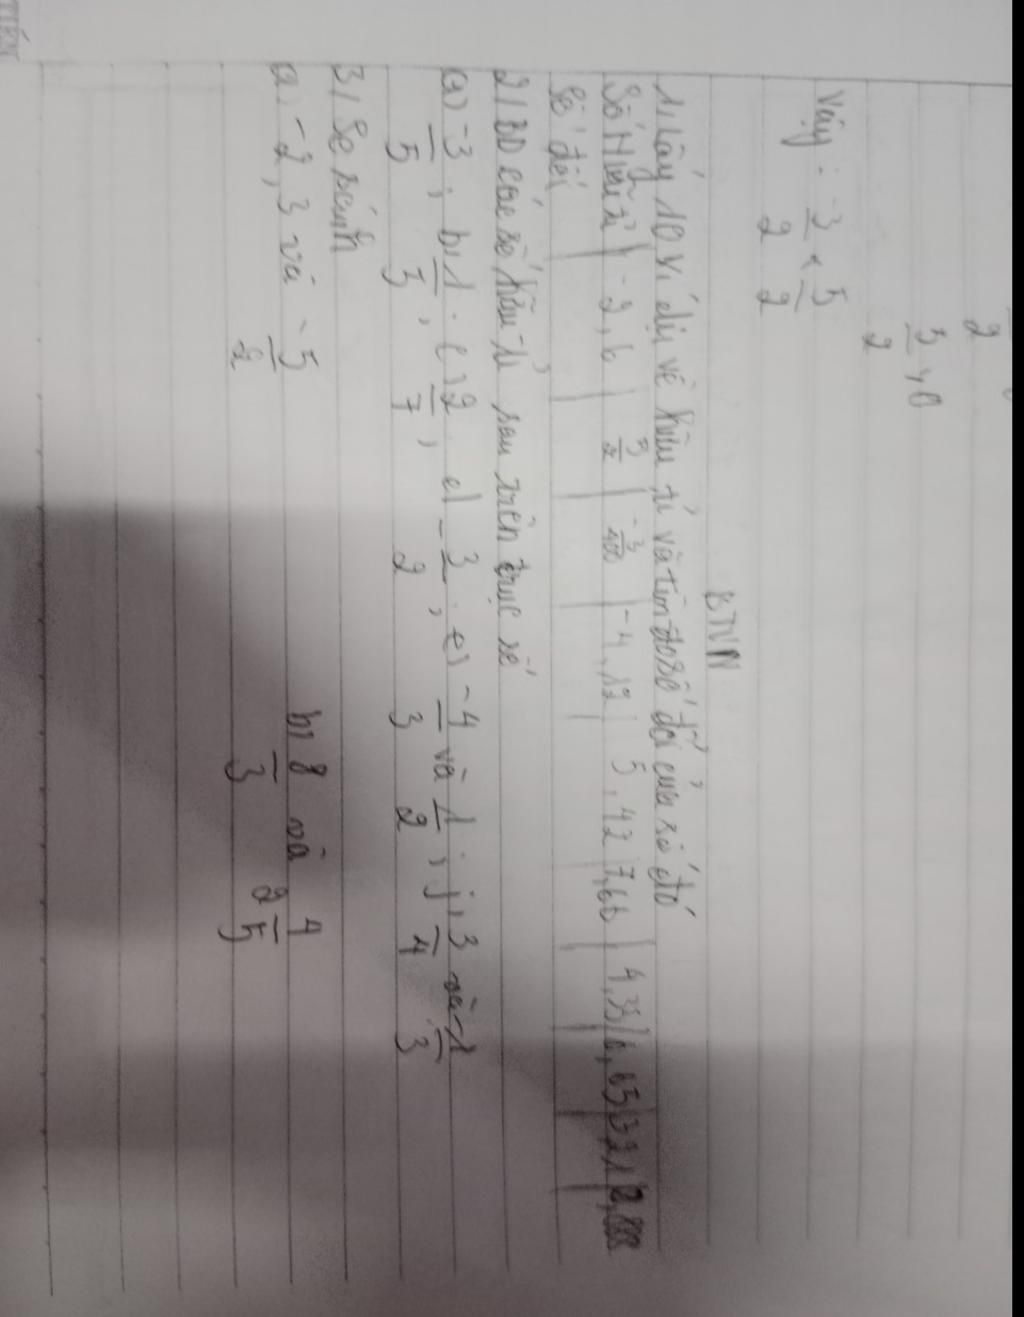 2
3/2 > 0
Vậy : -3/2 < 5/2
BTVN
1, Lấy 10 ví dụ về hữu tỉ và tìm số đối của số đó
Số Hữu tỉ | -2,6 | | -3/400 | -4,12 | 5,42 | 7,66 | 4,35 | 6,65 | 32,1 |
Số đối
2/ BD các số hữu tỉ sau trên trục số
a) -3/5 ; b, 1/3 ; c) 2/7 ; d) -3/2 ; e) -4/3 và 1/2 ; j, 3/4 và -1/3
3/ So sánh
a) -2,3 và -5/2 b, 8/3 và 2 4/5